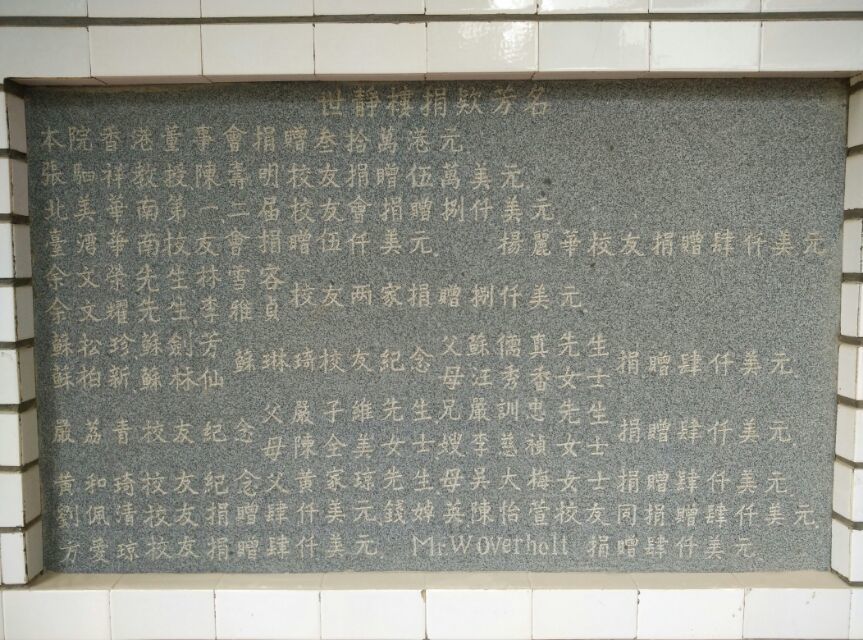 世靜樓捐欵芳名
本院香港董事會捐贈叁拾萬港元
張駟祥教授陳壽明校友捐贈伍萬美元.
北美華南第一.二届校友會捐贈捌仟美元.
臺灣華南校友會捐贈伍仟美元. 楊麗華校友捐贈肆仟美元
余文榮先生林雪容
余文耀先生.李雅貞
校友两家捐贈捌仟美元
蘇松珍.蘇劍芳
蘇柏新.蘇林仙
蘇琳琦校友紀念
父蘇儒真先生
母汪秀香女士
捐贈肆仟美元.
嚴荔青校友紀念
父嚴子維先生兄嚴訓忠先生
母陳全美女士嫂李慈禎女士
捐贈肆仟美元.
黃和琦校友紀念父黃家琼先生母吳大梅女士捐贈肆仟美元.
劉佩清校友捐贈肆仟美元.錢婥英陳怡萱校友同捐贈肆仟美元.
方愛琼校友捐贈肆仟美元. Mr.W.Overholt 捐贈肆仟美元.